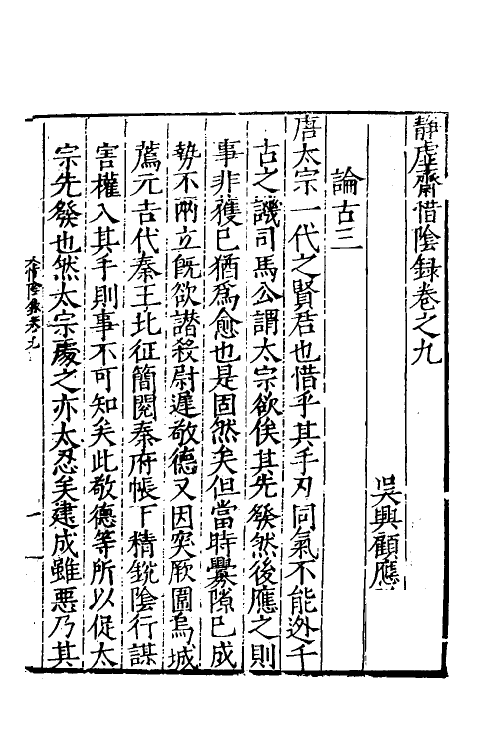 靜虛齋惜陰録卷之九
吳興顧應
論古三
唐太宗一代之賢君也惜乎其手刃同氣不能迯千
古之譏司馬公謂太宗欲俟其先發然後應之則
事非獲已猶爲愈也是固然矣但當時釁隙已成
勢不兩立旣欲譛殺尉遲敬德又因突厥圍烏城
薦元吉代秦王北征簡閱秦府帳下精銳陰行謀
害權入其手則事不可知矣此敬德等所以促太
宗先發也然太宗處之亦太忍矣建成雖悪乃其
惜陰录卷九
一